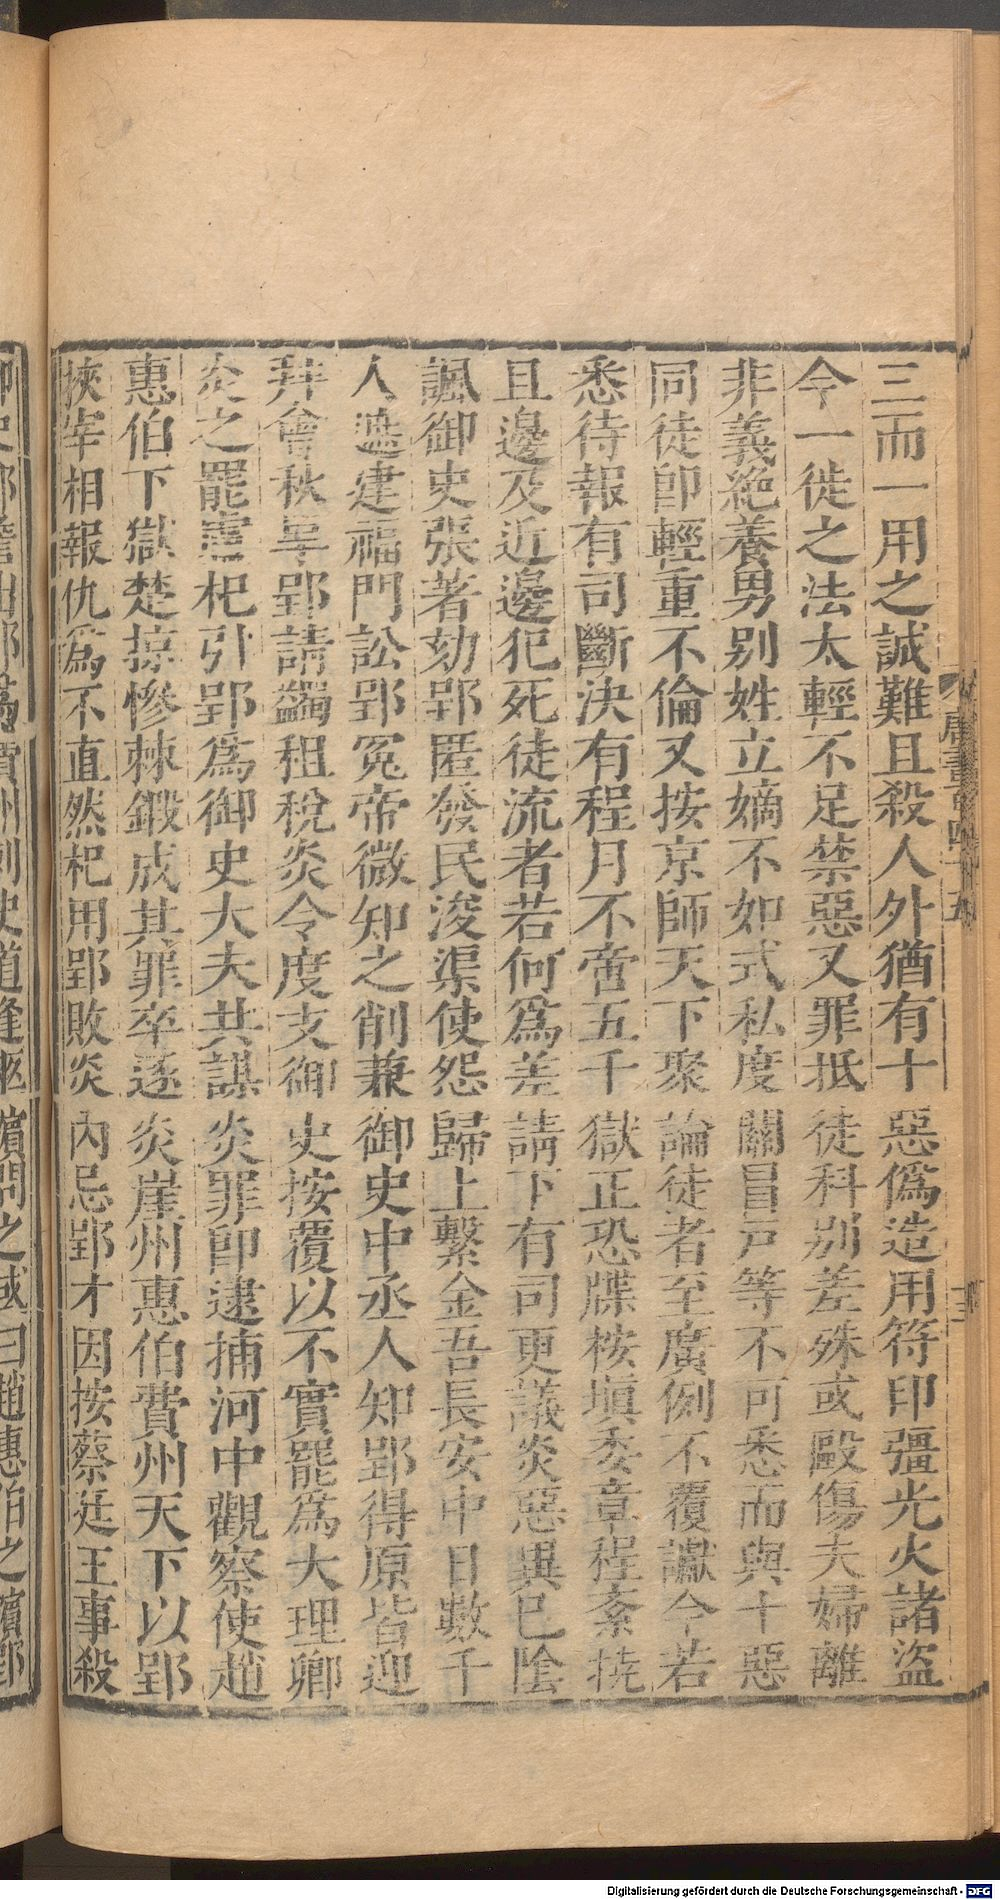 三而一用之誠難且殺人外猶有十惡僞造用符印彊光火諸盜
今一徙之法太輕不足禁惡又罪抵徒科别差殊或毆傷夫婦離
非義絶養男别姓立嫡不如式私度關冒戸等不可悉而與十惡
同徒卽輕重不倫又按京師天下聚論徒者至廣例不覆讞今若
悉待報有司斷決有程月不啻五千獄正恐牒桉塡委章程紊撓
且邊及近邊犯死徒流者若何爲差請下有司更議炎惡異已陰
諷御史張著劾郢匿發民浚渠使怨歸上繫金吾長安中日數千
人遮建福門訟郢冤帝微知之削兼御史中丞人知郢得原皆迎
拜會秋旱郢請蠲租稅炎令度支御史按覆以不實罷爲大理卿
炎之罷盧杞引郢爲御史大夫共謀炎罪卽逮捕河中觀察使趙
惠伯下獄楚掠慘棘鍛成其罪卒逐炎崖州惠伯費州天下以郢
挾宰相報仇爲不直然杞用郢敗炎內忌郢才因按蔡廷王事殺
唐書百四十五
Digitalisierung gefördert durch die Deutsche Forschungsgemeinschaft - DFG